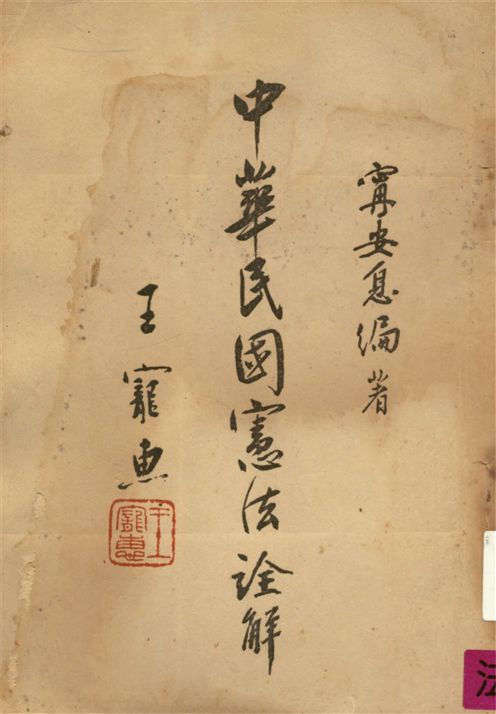 甯安息編著
中華民國憲法詮解
王寵惠
王寵惠
法